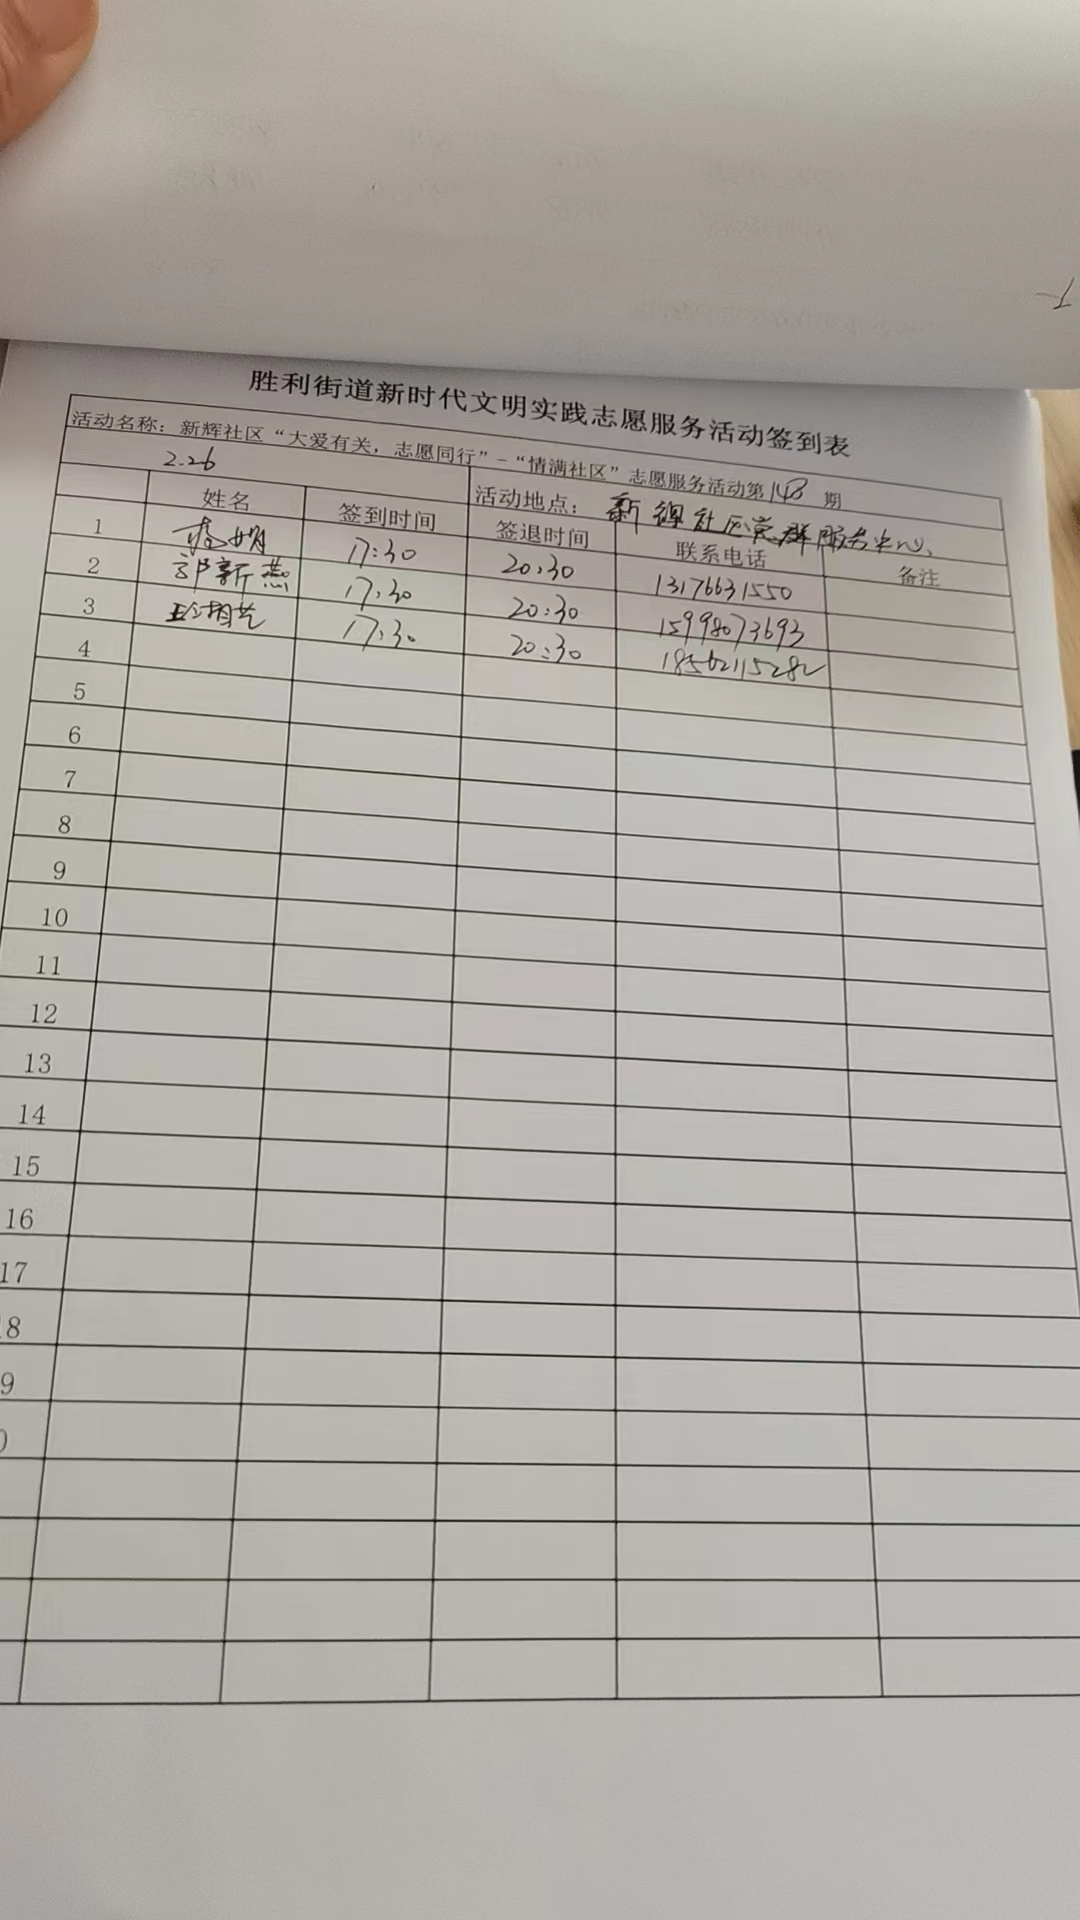 胜利街道新时代文明实践志愿服务活动签到表
活动名称：新辉社区“大爱有关，志愿同行”-“情满社区”志愿服务活动第148期
2.26
活动地点：新辉社区党群服务中心
姓名 签到时间 签退时间 联系电话 备注
1 17:30 20:30 13176631550
2 郭新燕 17:30 20:30 15998073693
3 17:30 20:30 18562115282
4
5
6
7
8
9
10
11
12
13
14
15
16
17
8
9